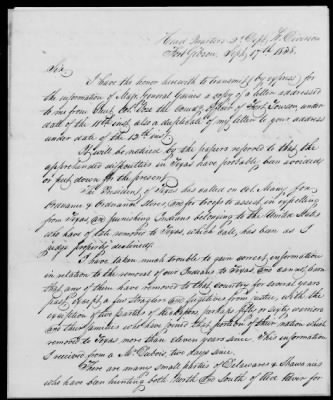 Head Quarters 2d Dept. W. Division
Fort Gibson, Sept. 17th 1838.
Sir,
I have the honor herewith to transmit (by express) for
the information of Maj. General Gaines a copy of a letter addressed
to me from Lieut. Col. Vose the comdg. officer of Fort Towson, under
date of the 11th inst. also a duplicate of my letter to your address
under date of the 13th inst.
It will be noticed by the papers referred to that the
apprehended difficulties in Texas have probably been avoided
or put down for the present.
The President of Texas has called on Col. Many for
Ordnance & Ordnance Stores, and for troops to assist in expelling
from Texas, and punishing Indians belonging to the United States
who have of late removed to Texas, which call, has been as I
judge properly declined.
I have taken much trouble to gain correct information
in relation to the removal of our Indians to Texas, and cannot learn
that any of them have removed to that country for several years
past, except a few stragglers and fugitives from justice, with the
exception of two parties of Kickapoos perhaps fifty or sixty warriors
and their families who have joined that portion of their nation which
removed to Texas more than eleven years since. This information
I received from a Mr. Dubois, two days since.
There are many small parties of Delawares & Shawanis
who have been hunting both North and South of Red River for